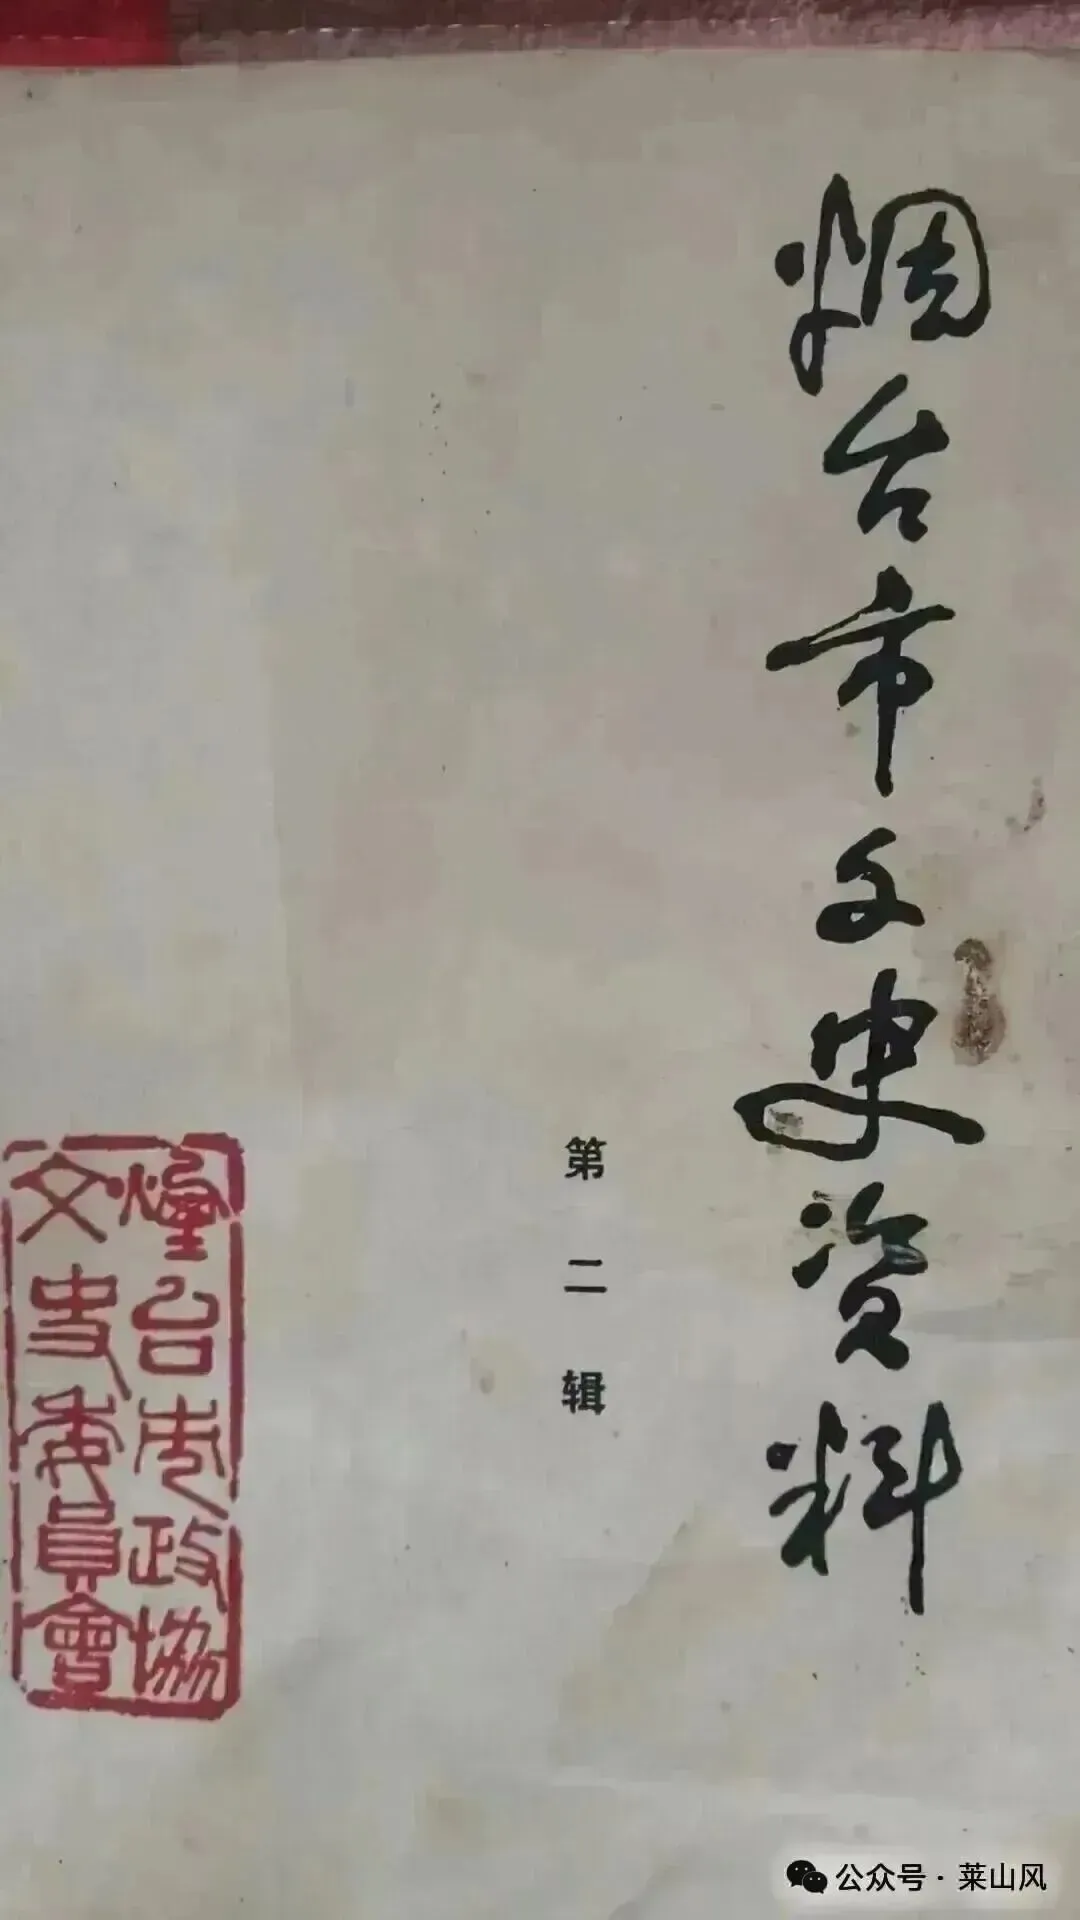 烟台市文史资料
第二辑
煙台市政協
文史委員會
公众号·莱山风